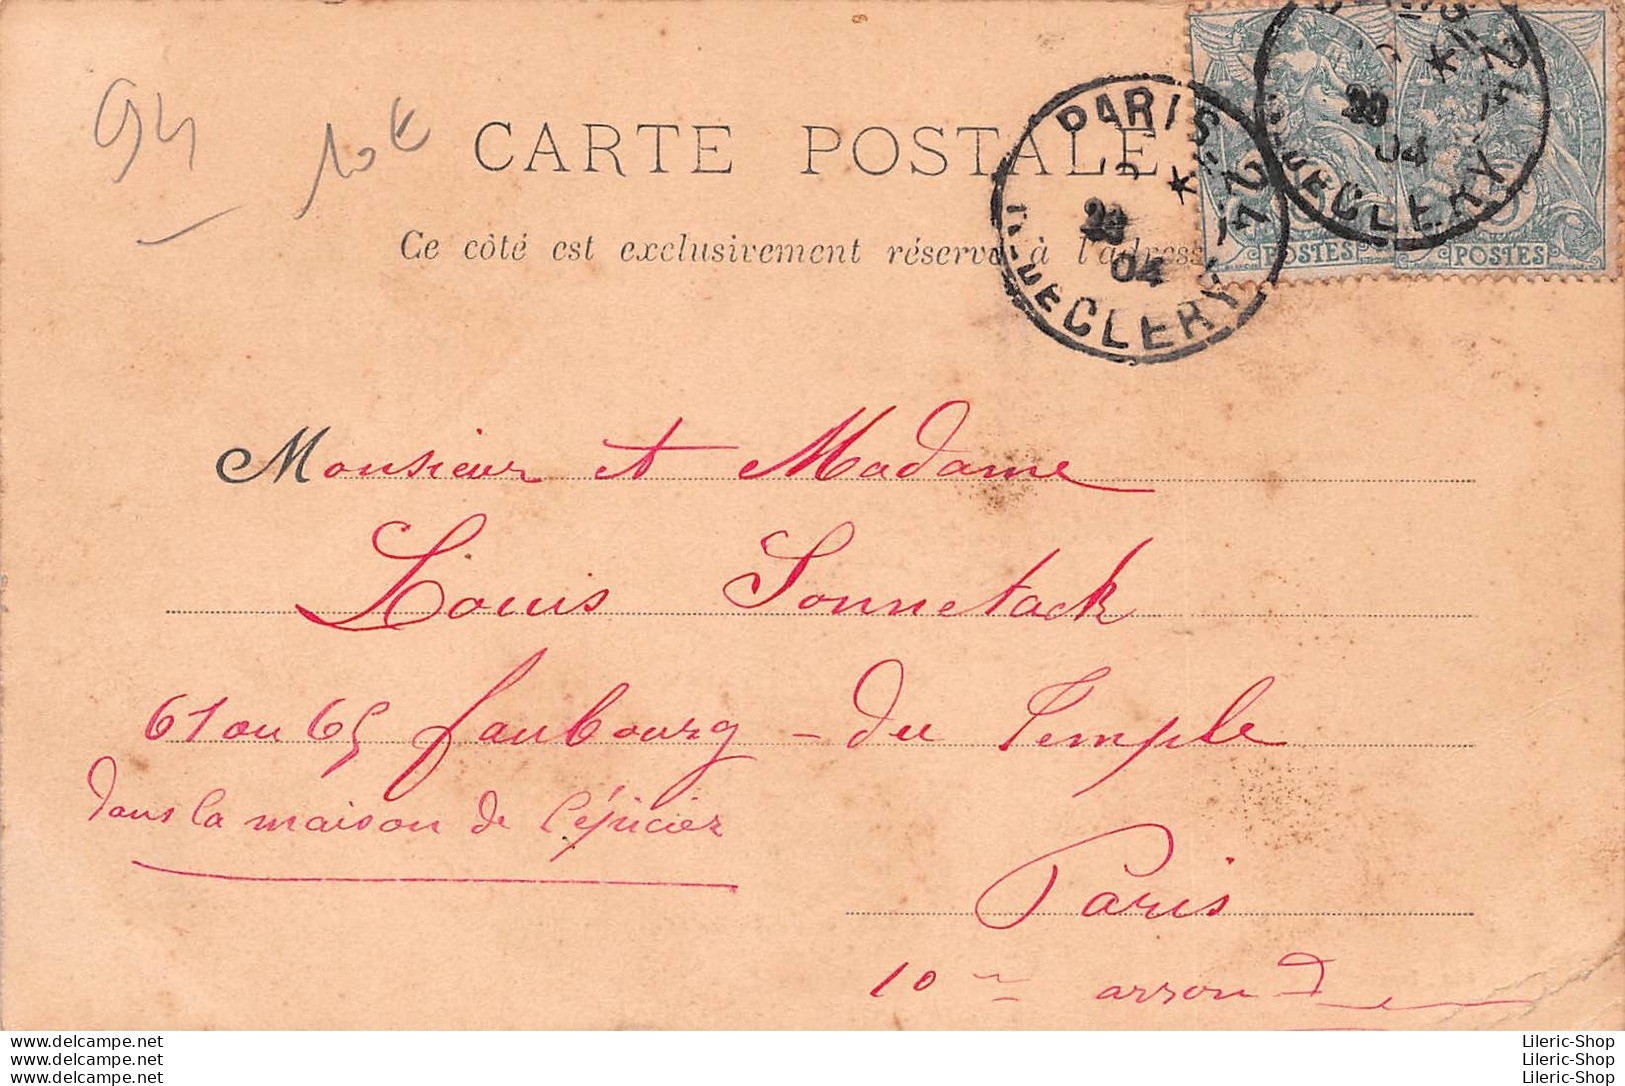 94
10 €
CARTE POSTALE
Ce côté est exclusivement réservé à l'adresse
PARIS 24
28
04
R. DE CLERY
24
28
04
R. DE CLERY
POSTES
POSTES
Monsieur et Madame
Louis Sonnetack
61 ou 65 faubourg - du Temple
dans la maison de l'épicier
Paris
10me arron
delcampe.net
delcampe.net
delcampe.net
Lileric-Shop
Lileric-Shop
Lileric-Shop